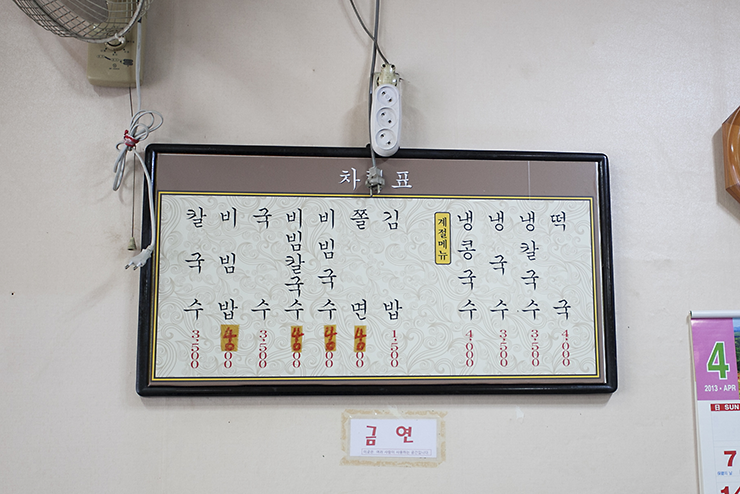 차림표
칼국수 3,500
비빔밥 4000
국수 3,500
비빔칼국수 4000
비빔국수 4000
쫄면 4000
김밥 1,500
계절메뉴
냉콩국수 4,000
냉국수 3,500
냉칼국수 3,500
떡국 4,000
금연
4
2013 • APR
日 SUN
7